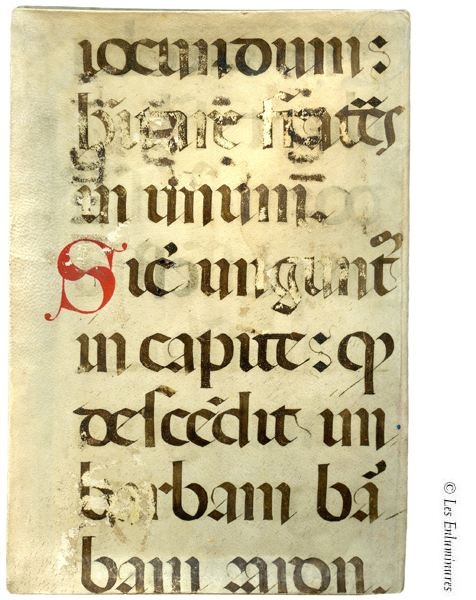 iocundum:
hītare fratres
in unum.
Sic̄ ungunt᷑
in capite: ꝙ
descēdit in
barbam bā
bam aaron.
© Les Enluminures